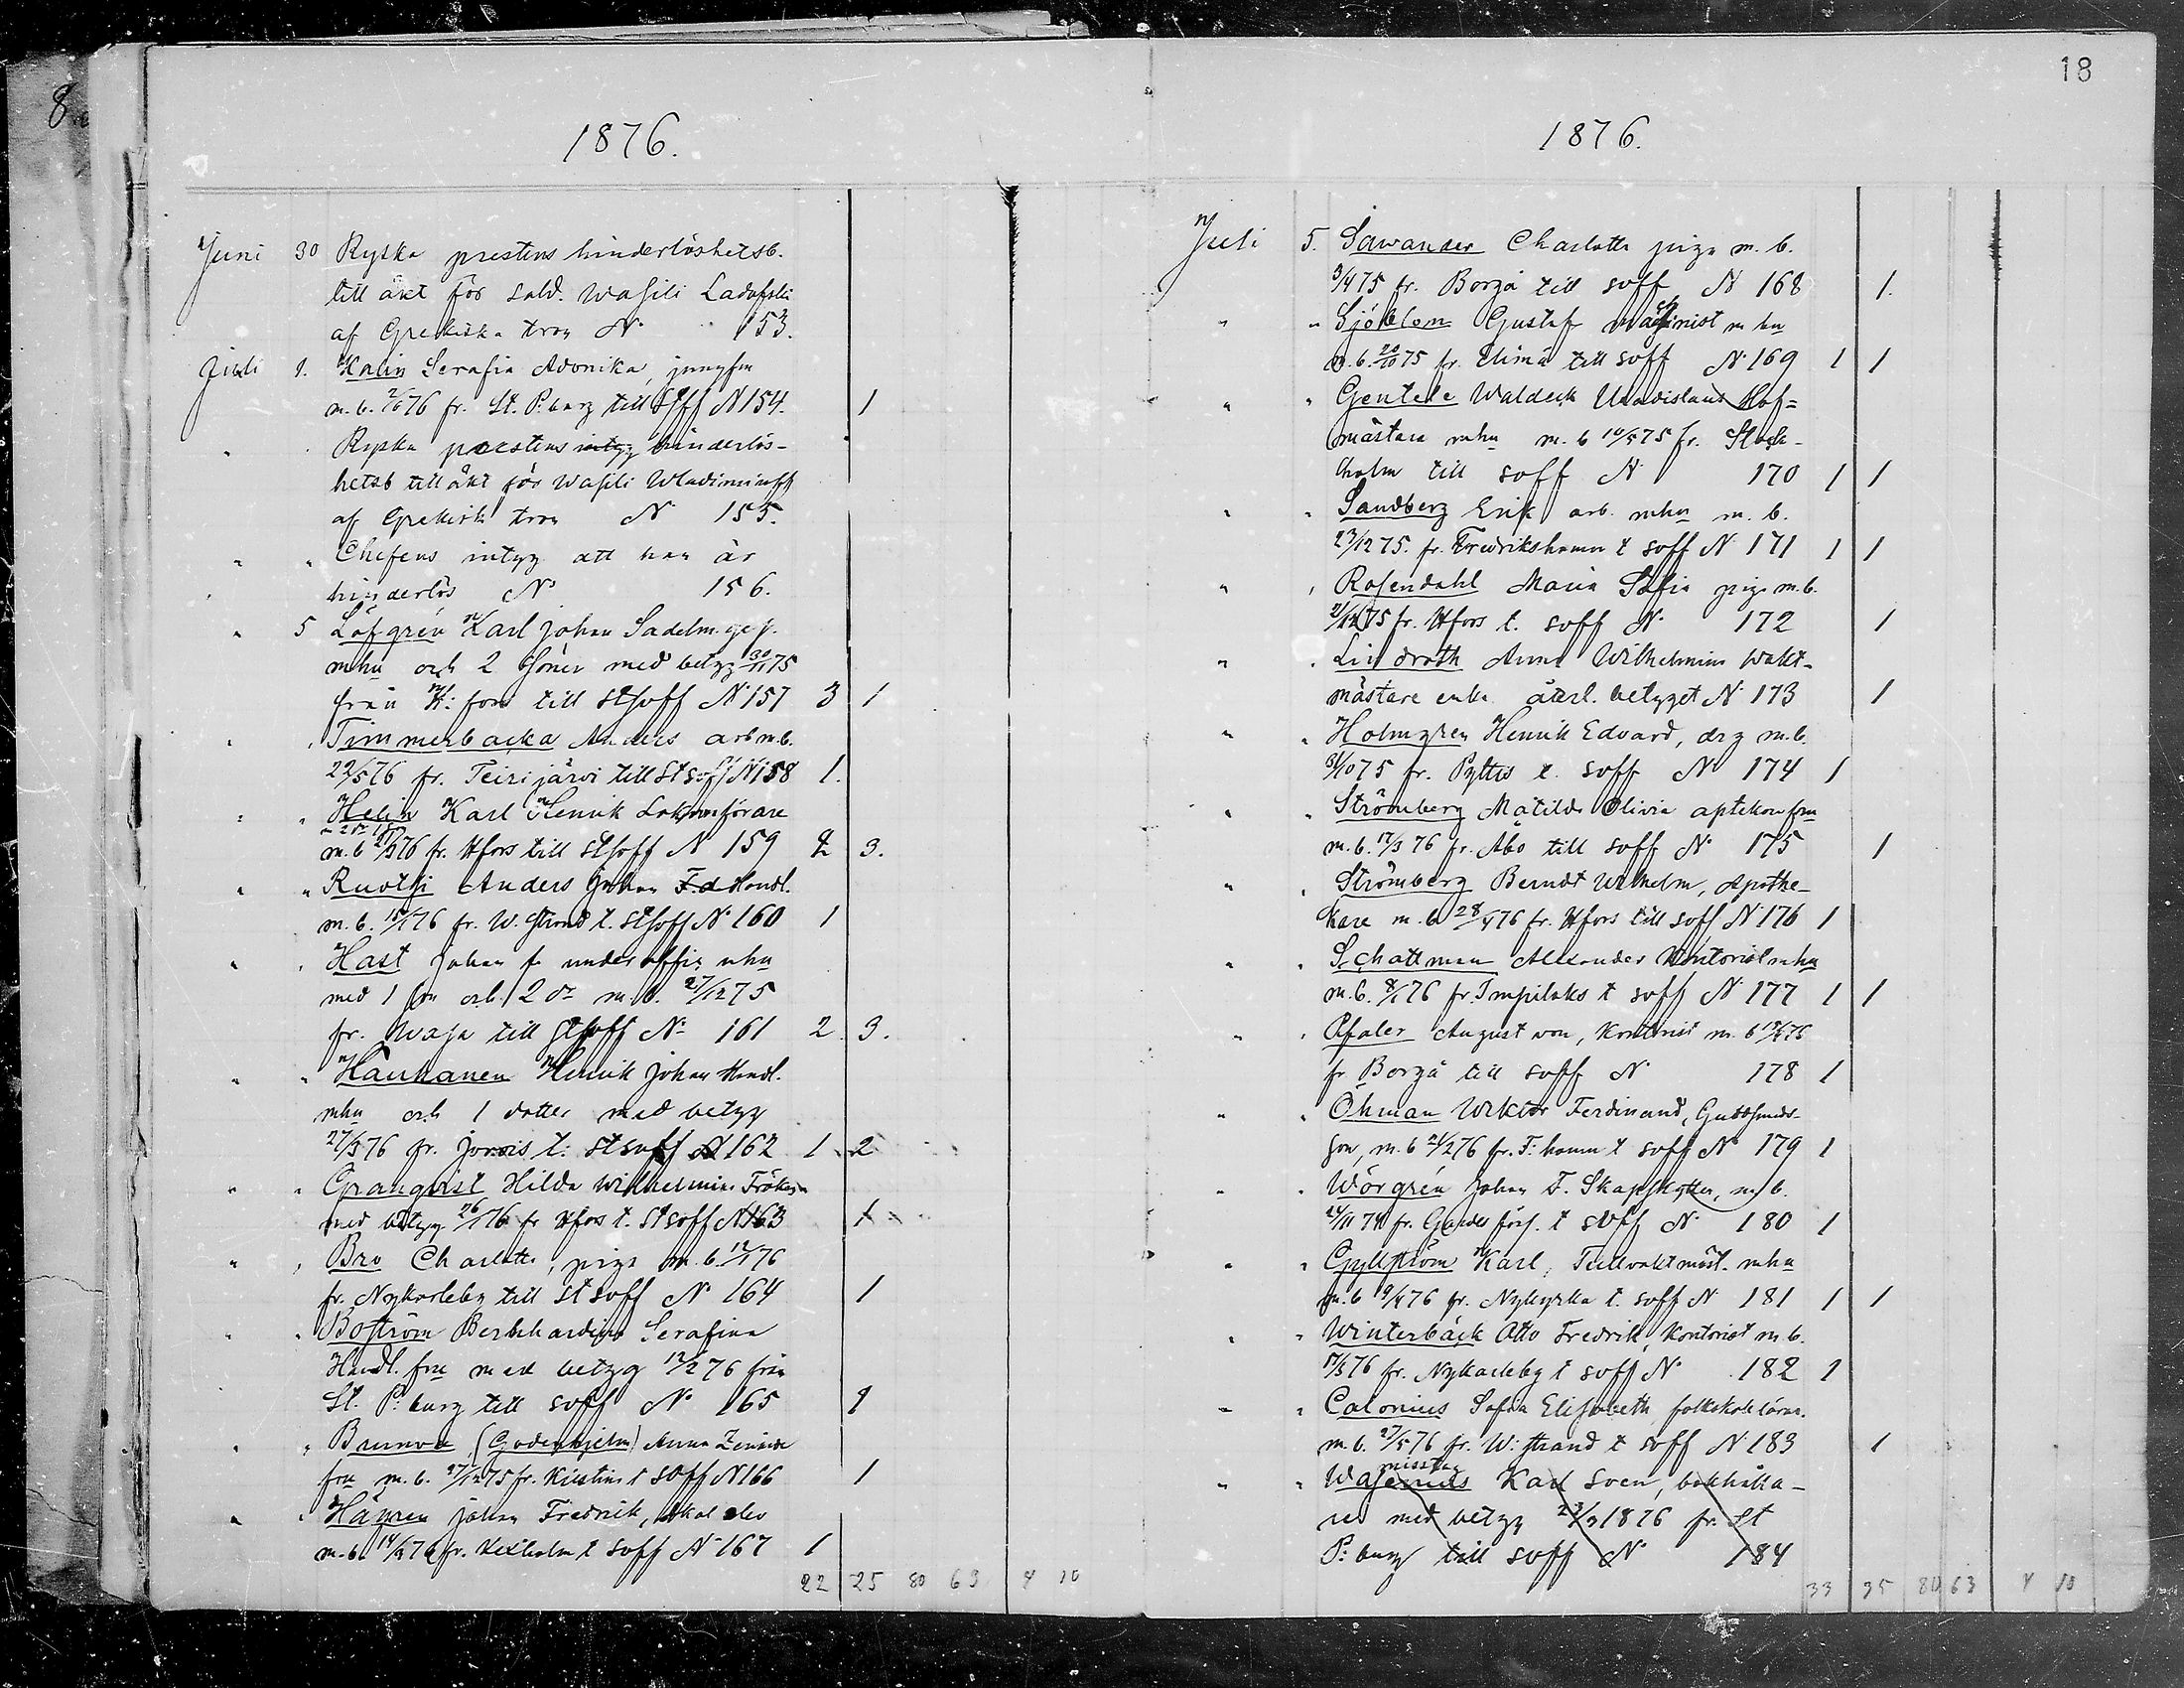 8
18
1876.
Juni 30 Ryska prestens hinderlöshetsb.
till äkt för sold. Wasili
af Grekiska tron N. 153.
Juli 1. Kalin Serafia Avonika, jungfru
m. b. 2/6 76 fr. St. P:burg till Stsoff N 154. 1
" " Ryska prestens intyg hinderlös-
hetsb till äkt för Wasili Wladimiroff
af Grekisk tron N 155.
" " Chefens intyg att han är
hinderlös No 156.
" 5 Löfgrén Karl Johan Sadelm. ges.
mhu och 2 söner med betyg 30/11 75
från H:fors till Stsoff N 157 3 1
" " Timmerbacka Anders arb m. b.
22/5 76 fr. Teirijärvi till St soff N 158 1.
" " Helin Karl Henrik Lokomförare
m. b 21/3 76 fr. Hfors till Stsoff N 159 2 3.
" " Ruotsi Anders Johan F d Handl.
m. b. 15/1 76 fr. W. Strand t. Stsoff N. 160 1
" " Hast Johan f. underoffic mhu
med 1 son och 2 dr m. b. 27/12 75
fr. Wasa till Stsoff No 161 2 3.
" " Hauhanen Henrik Johan Handl.
mhu och 1 dotter med betyg
27/3 76 fr. Jorois t. St soff N 162 1 2
" " Granqvist Hilda Wilhelmina Fröken
med betyg 26/1 76 fr Hfors t. St soff N 163 1
" " Bro Charlotta, piga m. b. 12/1 76
fr. Nykarleby till St soff No 164 1
" " Boström Bernhardina Serafina
Handl. fru med betyg 12/2 76 från
St. P:burg till soff No 165 1
" " Brunow (Godenhjelm) Anna Zenaide
fru m. b. 27/12 75 fr. Kristina t soff N 166 1
" " Hägren Johan Fredrik, skol elev
m. b. 14/3 76 fr. Kexholm t soff N 167 1
22 25 80 63 4 10
1876.
Juli 5. Sawander Charlotta piga m. b.
3/4 75 fr. Borgå till soff N 168 1.
" " Sjöblom Gustaf machinist m hu
m. b. 20/10 75 fr. Elimä till soff N. 169 1 1
" " Gentele Waldeck Uladislaus Hof=
mästare mhu m. b 10/5 75 fr. Stock-
holm till soff N. 170 1 1
" " Sandberg Erik arb. mhu m. b.
23/12 75. fr. Fredrikshamn t soff N 171 1 1
" " Rosendahl Maria Sofia piga m. b.
21/12 75 fr. Hfors t. soff N. 172 1
" " Lindroth Anna Wilhelmina Wakt-
mästare enka återl. betyget N. 173 1
" " Holmgren Henrik Edvard, drg m. b.
31/10 75 fr. Pyttis t. soff No 174 1
" " Strömberg Matilda Olivia aptekarefru
m. b. 17/3 76 fr. Åbo till soff No 175 1
" " Strömberg Berndt Wilhelm, Apothe-
kare m. b 28/4 76 fr. Hfors till soff N. 176 1
" " Schattman Alexander Kontorist mhu
m. b. 8/1 76 fr. Impilaks t soff N. 177 1 1
" " Pfaler August von, Kontorist m. b 19/6 76
fr Borgå till soff No 178 1
" " Öhman Wiktor Ferdinand, Guldsmeds-
son, m. b 21/2 76 fr. F:hamn t soff No 179 1
" " Wörgrén Johan F. Skarpskytten, m b.
24/11 74 fr. Gardes förs. t soff N. 180 1
" " Gyllström Karl, Tullvaktmäst. mhu
m. b 9/4 76 fr. Nykyrka t. soff N 181 1 1
" " Winterbäck Otto Fredrik, Kontorist m. b.
17/3 76 fr. Nykarleby t soff No 182 1
" " Calonius Sofia Elisabeth folkskolelärar.
m. b. 27/5 76 fr. W:strand t soff N. 183 1
misstag
" " Wasenius Karl Sven, bokhålla-
re med betyg 23/3 1876 fr. St
P:burg till soff No 184
33 35 80 63 4 10